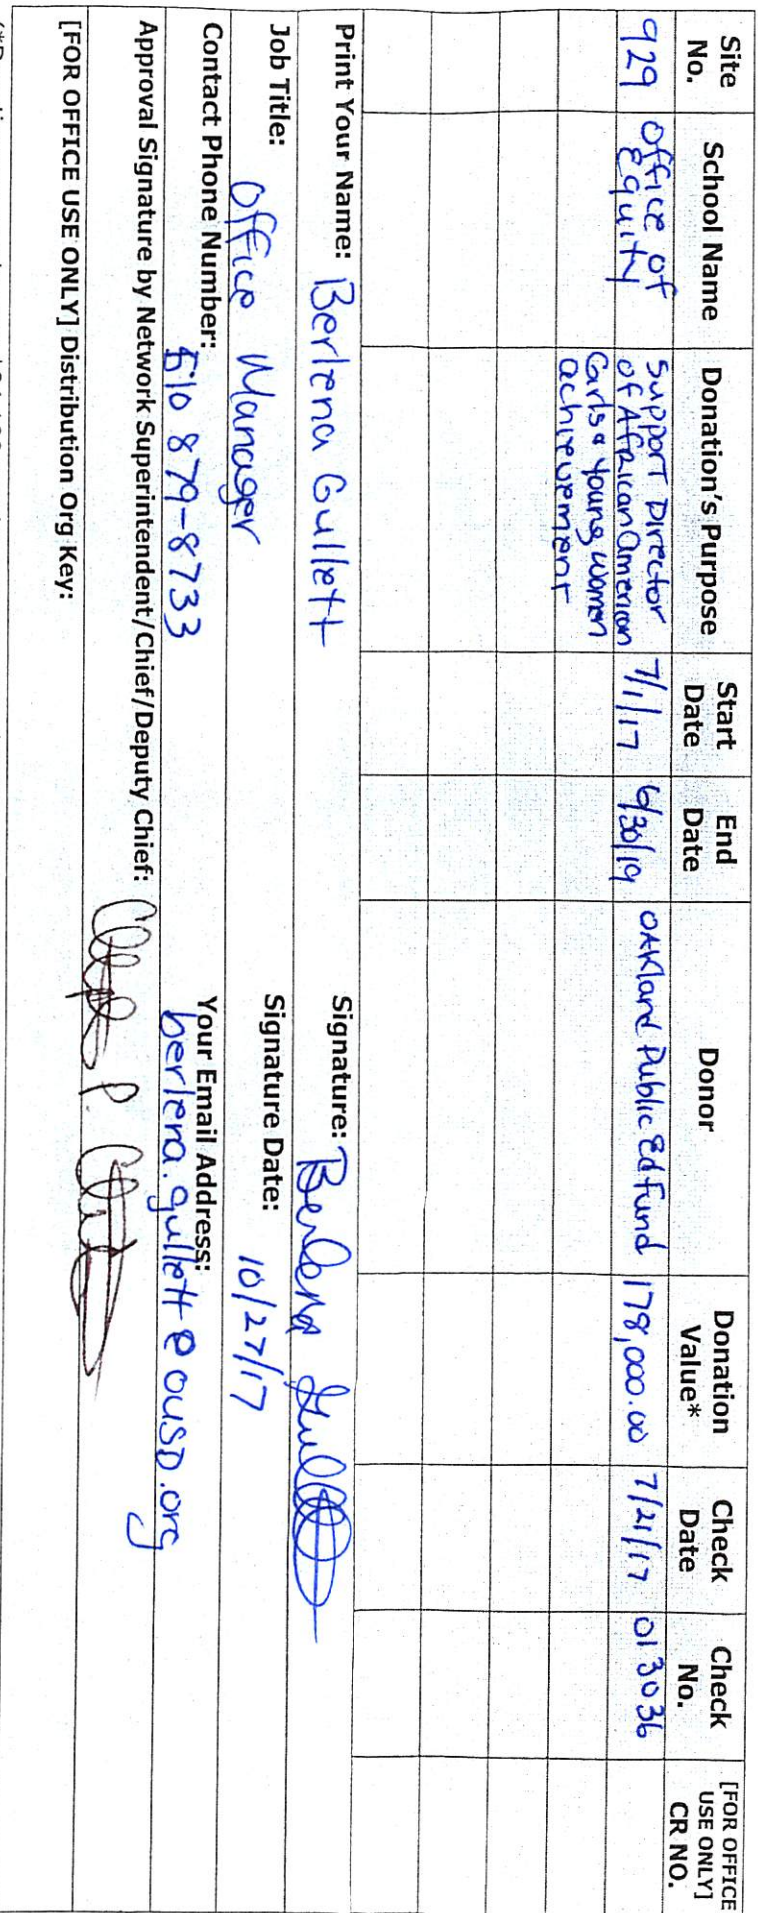 Site No.
School Name
Donation's Purpose
Start Date
End Date
Donor
Donation Value*
Check Date
Check No.
[FOR OFFICE USE ONLY] CR NO.
929
Office of Equity
Support Director
of African American
Girls & Young Women
achievement
7/1/17
6/30/19
Oakland Public Ed Fund
178,000.00
7/21/17
013036
Print Your Name: Berlena Gullett
Signature: Berlena Gullett
Job Title: Office Manager
Signature Date: 10/27/17
Contact Phone Number: 510 879-8733
Your Email Address: berlena.gullett@ousd.org
Approval Signature by Network Superintendent/Chief/Deputy Chief:
[FOR OFFICE USE ONLY] Distribution Org Key: